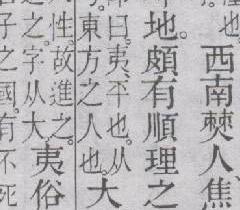 也。西南僰人、焦
地。頗有順理之
曰。夷、平也。从
東方之人也。大
性。故進之。
之。字从大夷俗
子之國。有不死